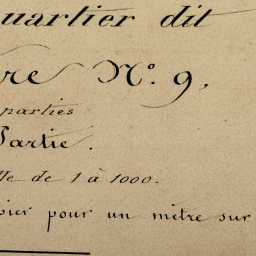 uartier dit
re N.º 9,
parties
Partie.
lle de 1 à 1000.
pier pour un mètre sur